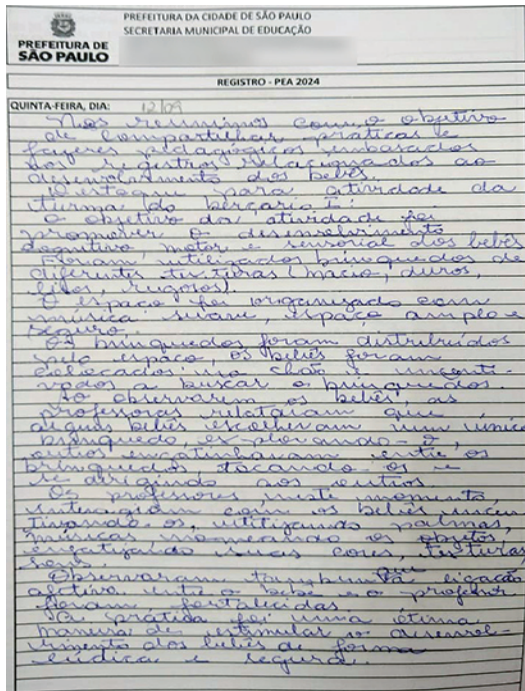 PREFEITURA DE
SÃO PAULO
PREFEITURA DA CIDADE DE SÃO PAULO
SECRETARIA MUNICIPAL DE EDUCAÇÃO
REGISTRO - PEA 2024
QUINTA-FEIRA, DIA: 12/09
Nos reunimos com o objetivo
de compartilhar práticas e
fazeres pedagógicos embasados
nos registros relacionados ao
desenvolvimento dos bebês.
Destaque para atividade da
turma do berçário I:
O objetivo da atividade foi
promover o desenvolvimento
cognitivo, motor e sensorial dos bebês
Foram utilizados brinquedos de
diferentes texturas (macio, duros,
lisos, rugosos).
O espaço foi organizado com
música suave, espaço amplo e
seguro.
Os brinquedos foram distribuídos
pelo espaço, os bebês foram
colocados no chão e incenti-
vados a buscar o brinquedos.
Ao observarem os bebês, as
professoras relataram que
alguns bebês escolheram um único
brinquedo, explorando-o,
outros engatinhavam entre os
brinquedos tocando-os e
se dirigindo aos outros
Os professores, neste momento,
interagiam com os bebês incen
tivando os, utilizando palmas,
músicas, nomeando os objetos,
enfatizando suas cores, texturas
sons.
Observaram também que a ligação
afetiva entre o bebê e o professor
foram fortalecidas.
A prática foi uma ótima
maneira de estimular o desenvol-
vimento dos bebês de forma
lúdica e segura.